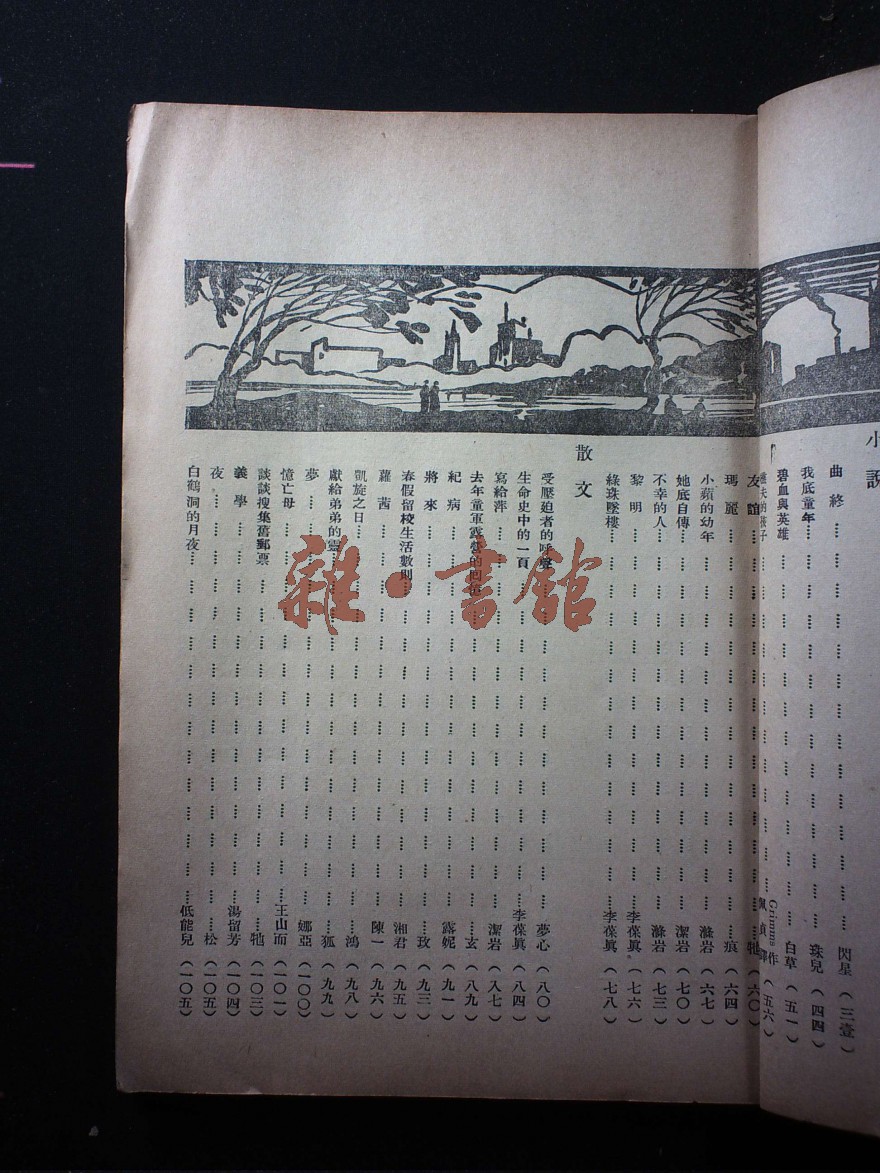 小說
曲終 閃星（三壹）
我底童年 珠兒（四四）
碧血與英雄 白草（五一）
夫的孩子 Grimms作 佩貞譯（五六）
友誼 牠（六〇）
瑪麗 痕（六四）
小蘋的幼年 滌岩（六七）
她底自傳 潔岩（七〇）
不幸的人 滌岩（七三）
黎明 李葆眞（七六）
綠珠墜樓 李葆眞（七八）
散文
受壓迫者的呼聲 夢心（八〇）
生命史中的一頁 李葆眞（八四）
寫給萍 潔岩（八七）
去年童軍露營的回 玄（八九）
紀病 露妮（九一）
將來 玫（九三）
春假留校生活數則 湘君（九五）
蘿茜 陳一（九六）
凱旋之日 鴻（九八）
獻給弟弟的靈 狐（九九）
夢 娜亞（一〇〇）
憶亡母 王山而（一〇一）
談談搜集舊郵票 牠（一〇三）
義學 湯留芳（一〇四）
夜 松（一〇五）
白鶴洞的月夜 低能兒（一〇五）
雜·書館